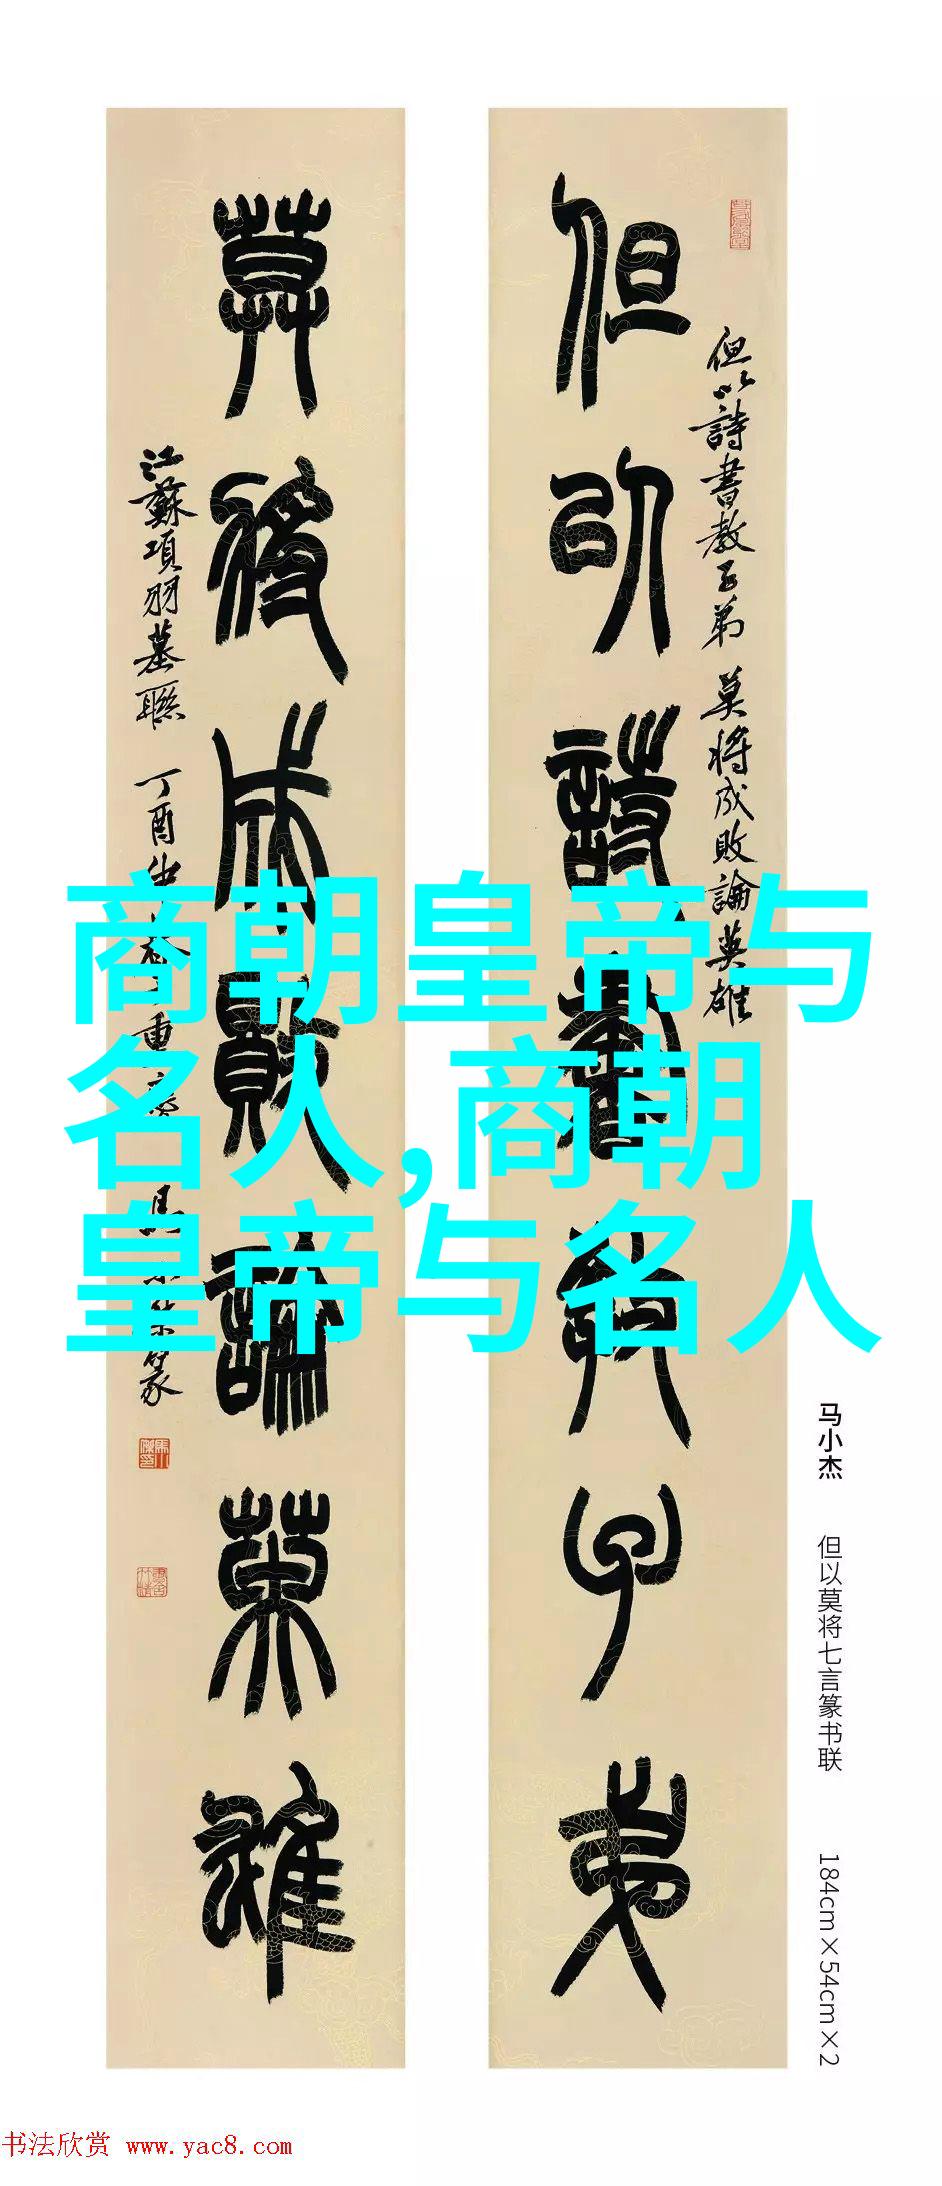 但以詩書教子弟
但以詩書教子弟 莫將成敗論英雄
莫將成敗論英雄
江蘇項羽墓聯 丁酉
重慶
馬
篆
商朝皇帝与
名人,商朝
皇帝与名人
马小杰 但以莫将七言篆书联 184cm×54cm×2
书法欣赏 www.yac8.com